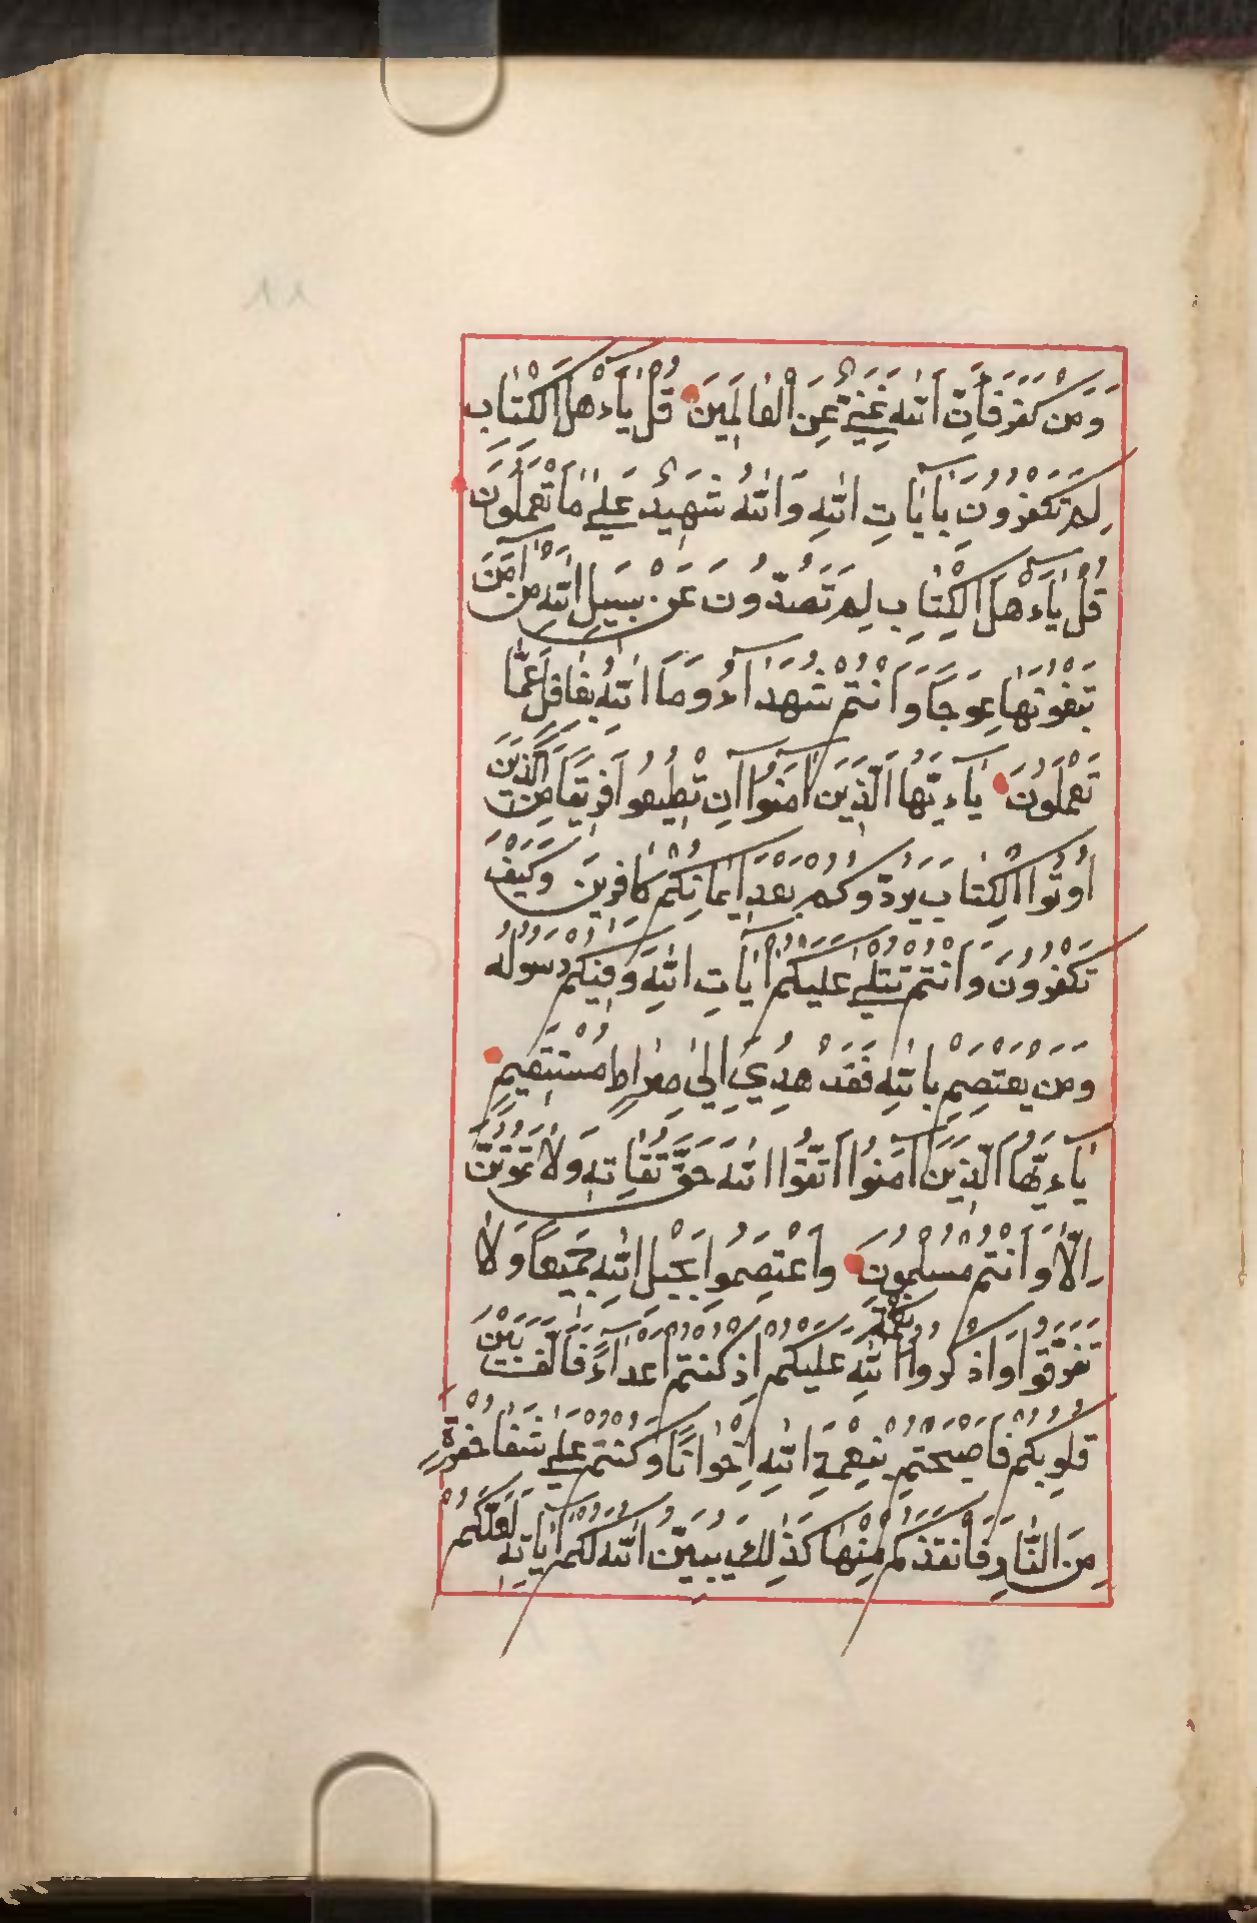 وَمَن كَفَرَ فَأِنَّ اَللّٰهَ غَنِيٌّ عَنِ اْلعَالَمِينَ قُلْ يَاءَهْلَ الْكِتَابِ
لِمَ تَكْفُرُونَ بِأَيَاتِ اللّٰهِ وَاللّٰهُ شَهِيدٌ عَلَى مَا تَعْمَلُونَ
قُلْ يَاءَهْلَ الْكِتَابِ لِمَ تَصُدُّونَ عَنْ سَبِيلِ اللّٰهِ مَنْ اٰمَنَ
تَبْغُونَهَا عِوَجًا وَاَنْتُمْ شُهَدَاءُ وَمَا اللّٰهُ بِغَافِلٍ عَمَّا
تَعْمَلُونَ يَاءَيُّهَا الَّذِينَ اٰمَنُوا اِن تُطِيعُوا فَرِيقًا مِنَ الَّذِينَ
اُوتُوا الْكِتَابَ يَرُدُّوكُمْ بَعْدَ اِيمَانِكُمْ كَافِرِينَ وَكَيْفَ
تَكْفُرُونَ وَاَنْتُمْ تُتْلَى عَلَيْكُمْ اٰيَاتِ اللّٰهِ وَفِيكُمْ رَسُولُهُ
وَمَن يَعْتَصِمْ بِاللّٰهِ فَقَدْ هُدِيَ اِلَى صِرَاطٍ مُسْتَقِيمٍ
يَاءَيُّهَا الَّذِينَ اٰمَنُوا اتَّقُوا اللّٰهَ حَقَّ تُقَاتِهِ وَلَا تَمُوتُنَّ
اِلَّا وَاَنْتُمْ مُسْلِمُونَ وَاعْتَصِمُوا بِحَبْلِ اللّٰهِ جَمِيعًا وَلَا
تَفَرَّقُوا وَاذْكُرُوا نِعْمَةَ اللّٰهِ عَلَيْكُمْ اِذْ كُنْتُمْ اَعْدَاءً فَاَلَّفَ بَيْنَ
قُلُوبِكُمْ فَاَصْبَحْتُمْ بِنِعْمَةِ اللّٰهِ اِخْوَانًا وَكُنْتُمْ عَلَى شَفَا حُفْرَةٍ
مِنَ النَّارِ فَاَنْقَذَكُم مِنْهَا كَذَلِكَ يُبَيِّنُ اللّٰهُ لَكُمْ اٰيَاتِهِ لَعَلَّكُمْ